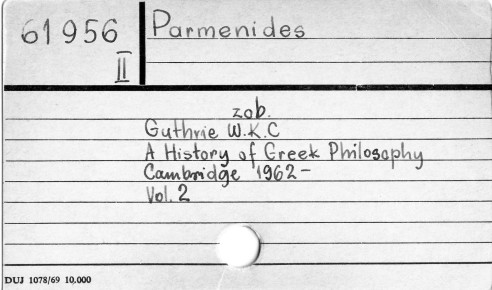 61956 Parmenides
II
zob.
Guthrie W.K.C
A History of Greek Philosophy
Cambridge 1962-
Vol. 2
DUJ 1078/69 10.000